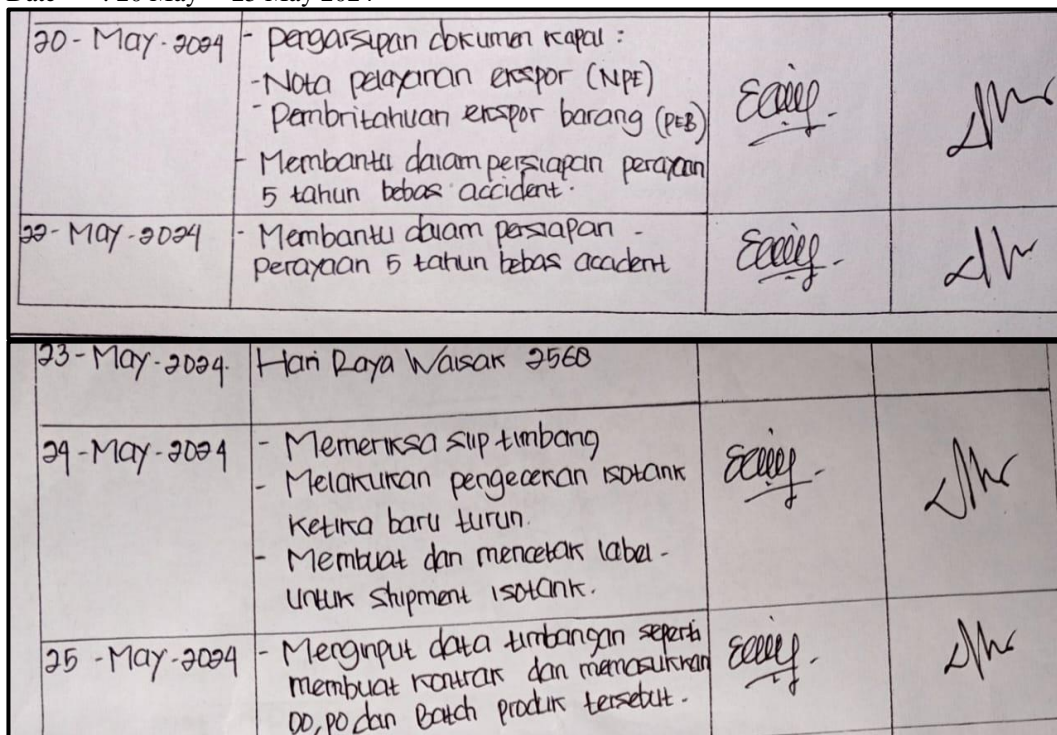 20 - May - 2024 - Pengarsipan dokumen kapal :
- Nota pelayanan ekspor (NPE)
- Pembritahuan ekspor barang (PEB)
- Membantu dalam persiapan perayaan
5 tahun bebas accident.
22 - May - 2024 - Membantu dalam persiapan -
perayaan 5 tahun bebas accident
23 - May - 2024. Hari Raya Waisak 2568
24 - May - 2024 - Memeriksa slip timbang
- Melakukan pengecekan isotank
ketika baru turun.
- Membuat dan mencetak label -
untuk shipment isotank.
25 - May - 2024 - Menginput data timbangan seperti
membuat kontrak dan memasukkan
DO, PO dan Batch produk tersebut.